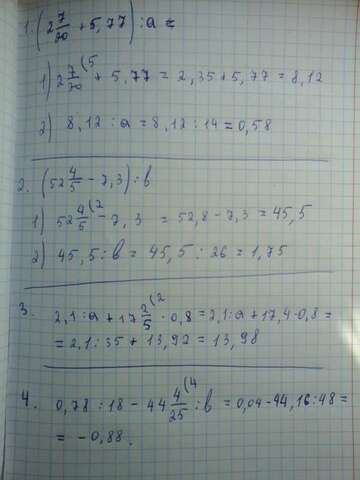 1. (2 7/20 + 5,77) : a =
1) 2 7/20 (5 + 5,77 = 2,35 + 5,77 = 8,12
2) 8,12 : a = 8,12 : 14 = 0,58
2. (52 4/5 - 7,3) : b
1) 52 4/5 (2 - 7,3 = 52,8 - 7,3 = 45,5
2) 45,5 : b = 45,5 : 26 = 1,75
3. 2,1 : a + 17 2/5 (2 · 0,8 = 2,1 : a + 17,4 · 0,8 =
= 2,1 : 35 + 13,92 = 13,98
4. 0,78 : 18 - 44 4/25 (4 : b = 0,04 - 44,16 : 48 =
= - 0,88.